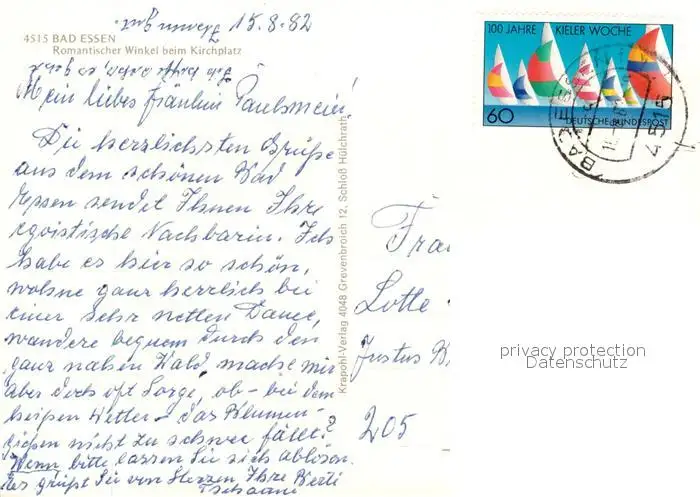 15.8.82
4515 BAD ESSEN
Romantischer Winkel beim Kirchplatz
Mein liebes Fräulein Paulsmeier!
Die herzlichsten Grüße
aus dem schönen Bad
Essen sendet Ihnen Ihre
egoistische Nachbarin. Ich
habe es hier so schön,
wohne ganz herrlich bei
einer sehr netten Dame,
wandere bequem durch den
ganz nahen Wald, mache mir
aber doch oft Sorge, ob - bei dem
heißen Wetter - das Blumen-
gießen nicht zu schwer fällt?
Wenn, bitte lassen Sie sich ablösen.
Es grüßt Sie von Herzen Ihre Berti
Krapohl-Verlag 4048 Grevenbroich 12, Schloß Hülchrath
100 JAHRE KIELER WOCHE
60 DEUTSCHE BUNDESPOST
4515
Frau
Lotte
Justus
205
privacy protection
Datenschutz